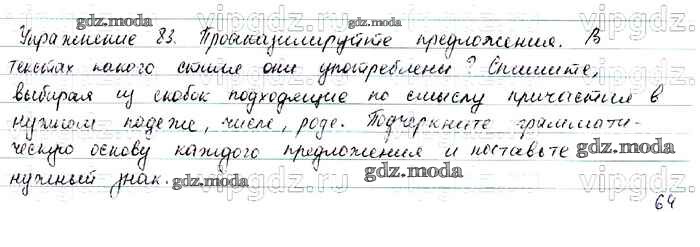 gdz.moda
gdz.moda
Упражнение 83. Проанализируйте предложения. В
текстах какого стиля они употреблены? Спишите,
выбирая из скобок подходящие по смыслу причастия в
нужном падеже, числе, роде. Подчеркните граммати-
ческую основу каждого предложения и поставьте gdz.moda
нужный знак. gdz.moda gdz.moda
64